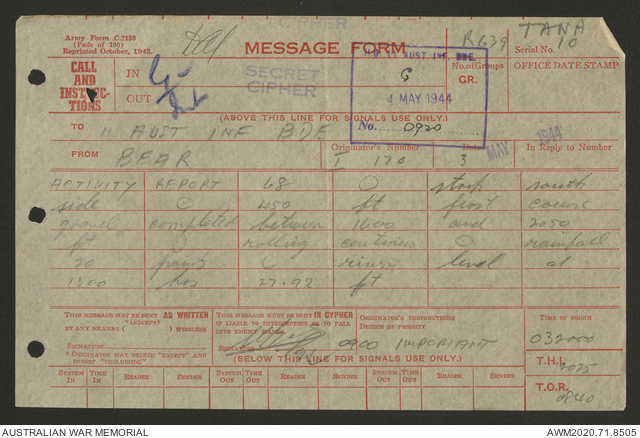 Army Form C.2136
(Pads of 100)
Reprinted October, 1942.
CIPHER
MESSAGE FORM
R639
TANA
Serial No. 10
CALL
AND
INSTRUC-
TIONS
IN
OUT
SECRET
CIPHER
H.Q. 11 AUST. INF. BDE.
G
4 MAY 1944
No. 0920
No. of Groups
GR.
OFFICE DATE STAMP
MAY 1944
(ABOVE THIS LINE FOR SIGNALS USE ONLY.)
TO 11 AUST INF BDE
FROM BEAR
Originator's Number
I 170
Date
3
In Reply to Number
ACTIVITY REPORT 68 O strip south
side O 450 ft first course
gravel completed between 1600 and 2050
ft O rolling continues O rainfall
20 points O river level at
1300 hrs 27.92 ft
THIS MESSAGE MAY BE SENT AS WRITTEN
(EXCEPT)
BY ANY MEANS: ( ) WIRELESS
SIGNATURE
*ORIGINATOR MAY DELETE "EXCEPT" AND
INSERT "INCLUDING."
THIS MESSAGE MUST BE SENT IN CYPHER
IF LIABLE TO INTERCEPTION OR TO FALL
INTO ENEMY HANDS.
SIGNATURE
0900
ORIGINATOR'S INSTRUCTIONS
DEGREE OF PRIORITY
IMPORTANT
TIME OF ORIGIN
032000
T.H.I.
2025
T.O.R.
0840
(BELOW THIS LINE FOR SIGNALS USE ONLY.)
SYSTEM IN TIME IN READER SENDER SYSTEM OUT TIME OUT READER SENDER SYSTEM OUT TIME OUT READER SENDER
AUSTRALIAN WAR MEMORIAL
AWM2020.71.8505